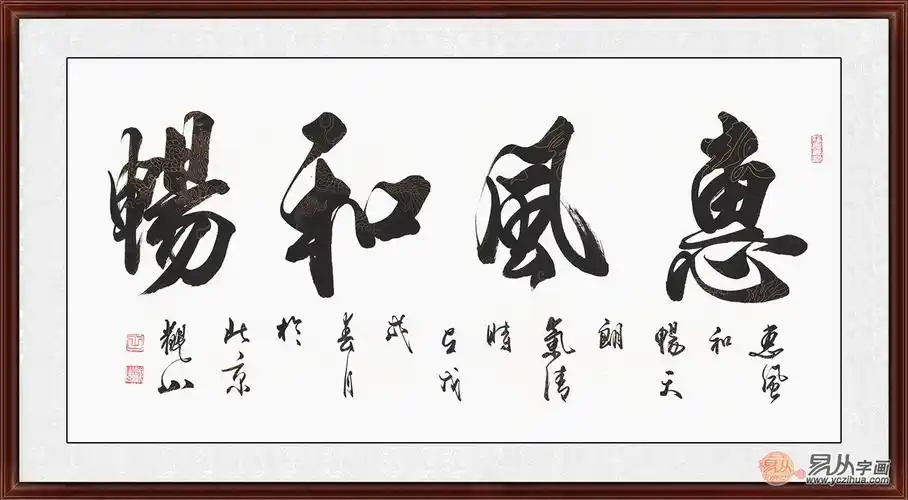 惠風和暢
惠風
和
暢天
朗
氣清
晴
歲
春月
於
北京
易从
易从字画
www.yczihua.com